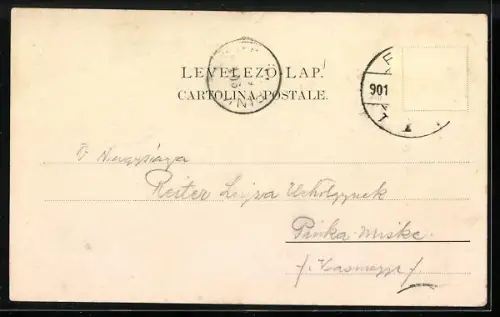 LEVELEZŐ-LAP.
CARTOLINA POSTALE.
901
Ő Nagysága
Reiter Lujza Urhölgynek
Pinka-Miske
/. Vasmegye /.